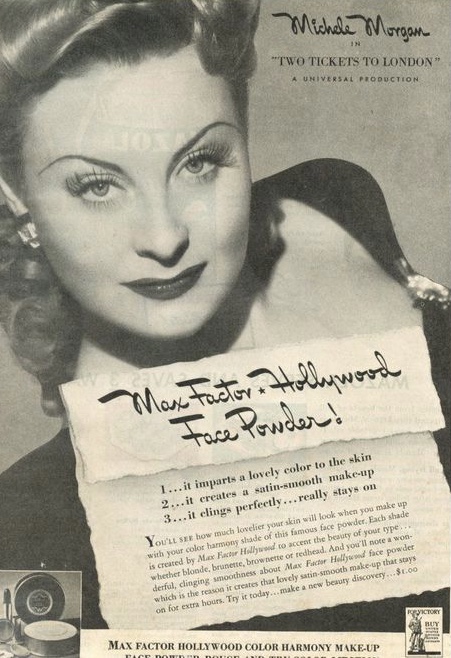 Michele Morgan
IN
"TWO TICKETS TO LONDON"
A UNIVERSAL PRODUCTION
Max Factor * Hollywood
Face Powder!
1...it imparts a lovely color to the skin
2...it creates a satin-smooth make-up
3...it clings perfectly...really stays on
YOU'LL SEE how much lovelier your skin will look when you make up
with your color harmony shade of this famous face powder. Each shade
is created by Max Factor Hollywood to accent the beauty of your type...
whether blonde, brunette, brownette or redhead. And you'll note a won-
derful, clinging smoothness about Max Factor Hollywood face powder
which is the reason it creates that lovely satin-smooth make-up that stays
on for extra hours. Try it today...make a new beauty discovery...$1.00
FOR VICTORY
BUY
UNITED
STATES
MAX FACTOR HOLLYWOOD COLOR HARMONY MAKE-UP